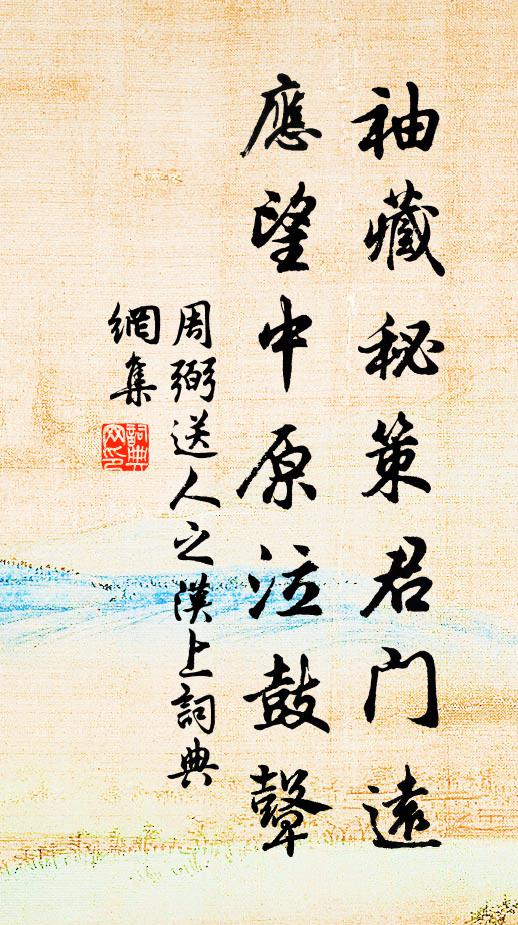 袖藏秘策君门遠
應望中原泣鼓鼙
周弼送人之漢上詞典
網集
詞典